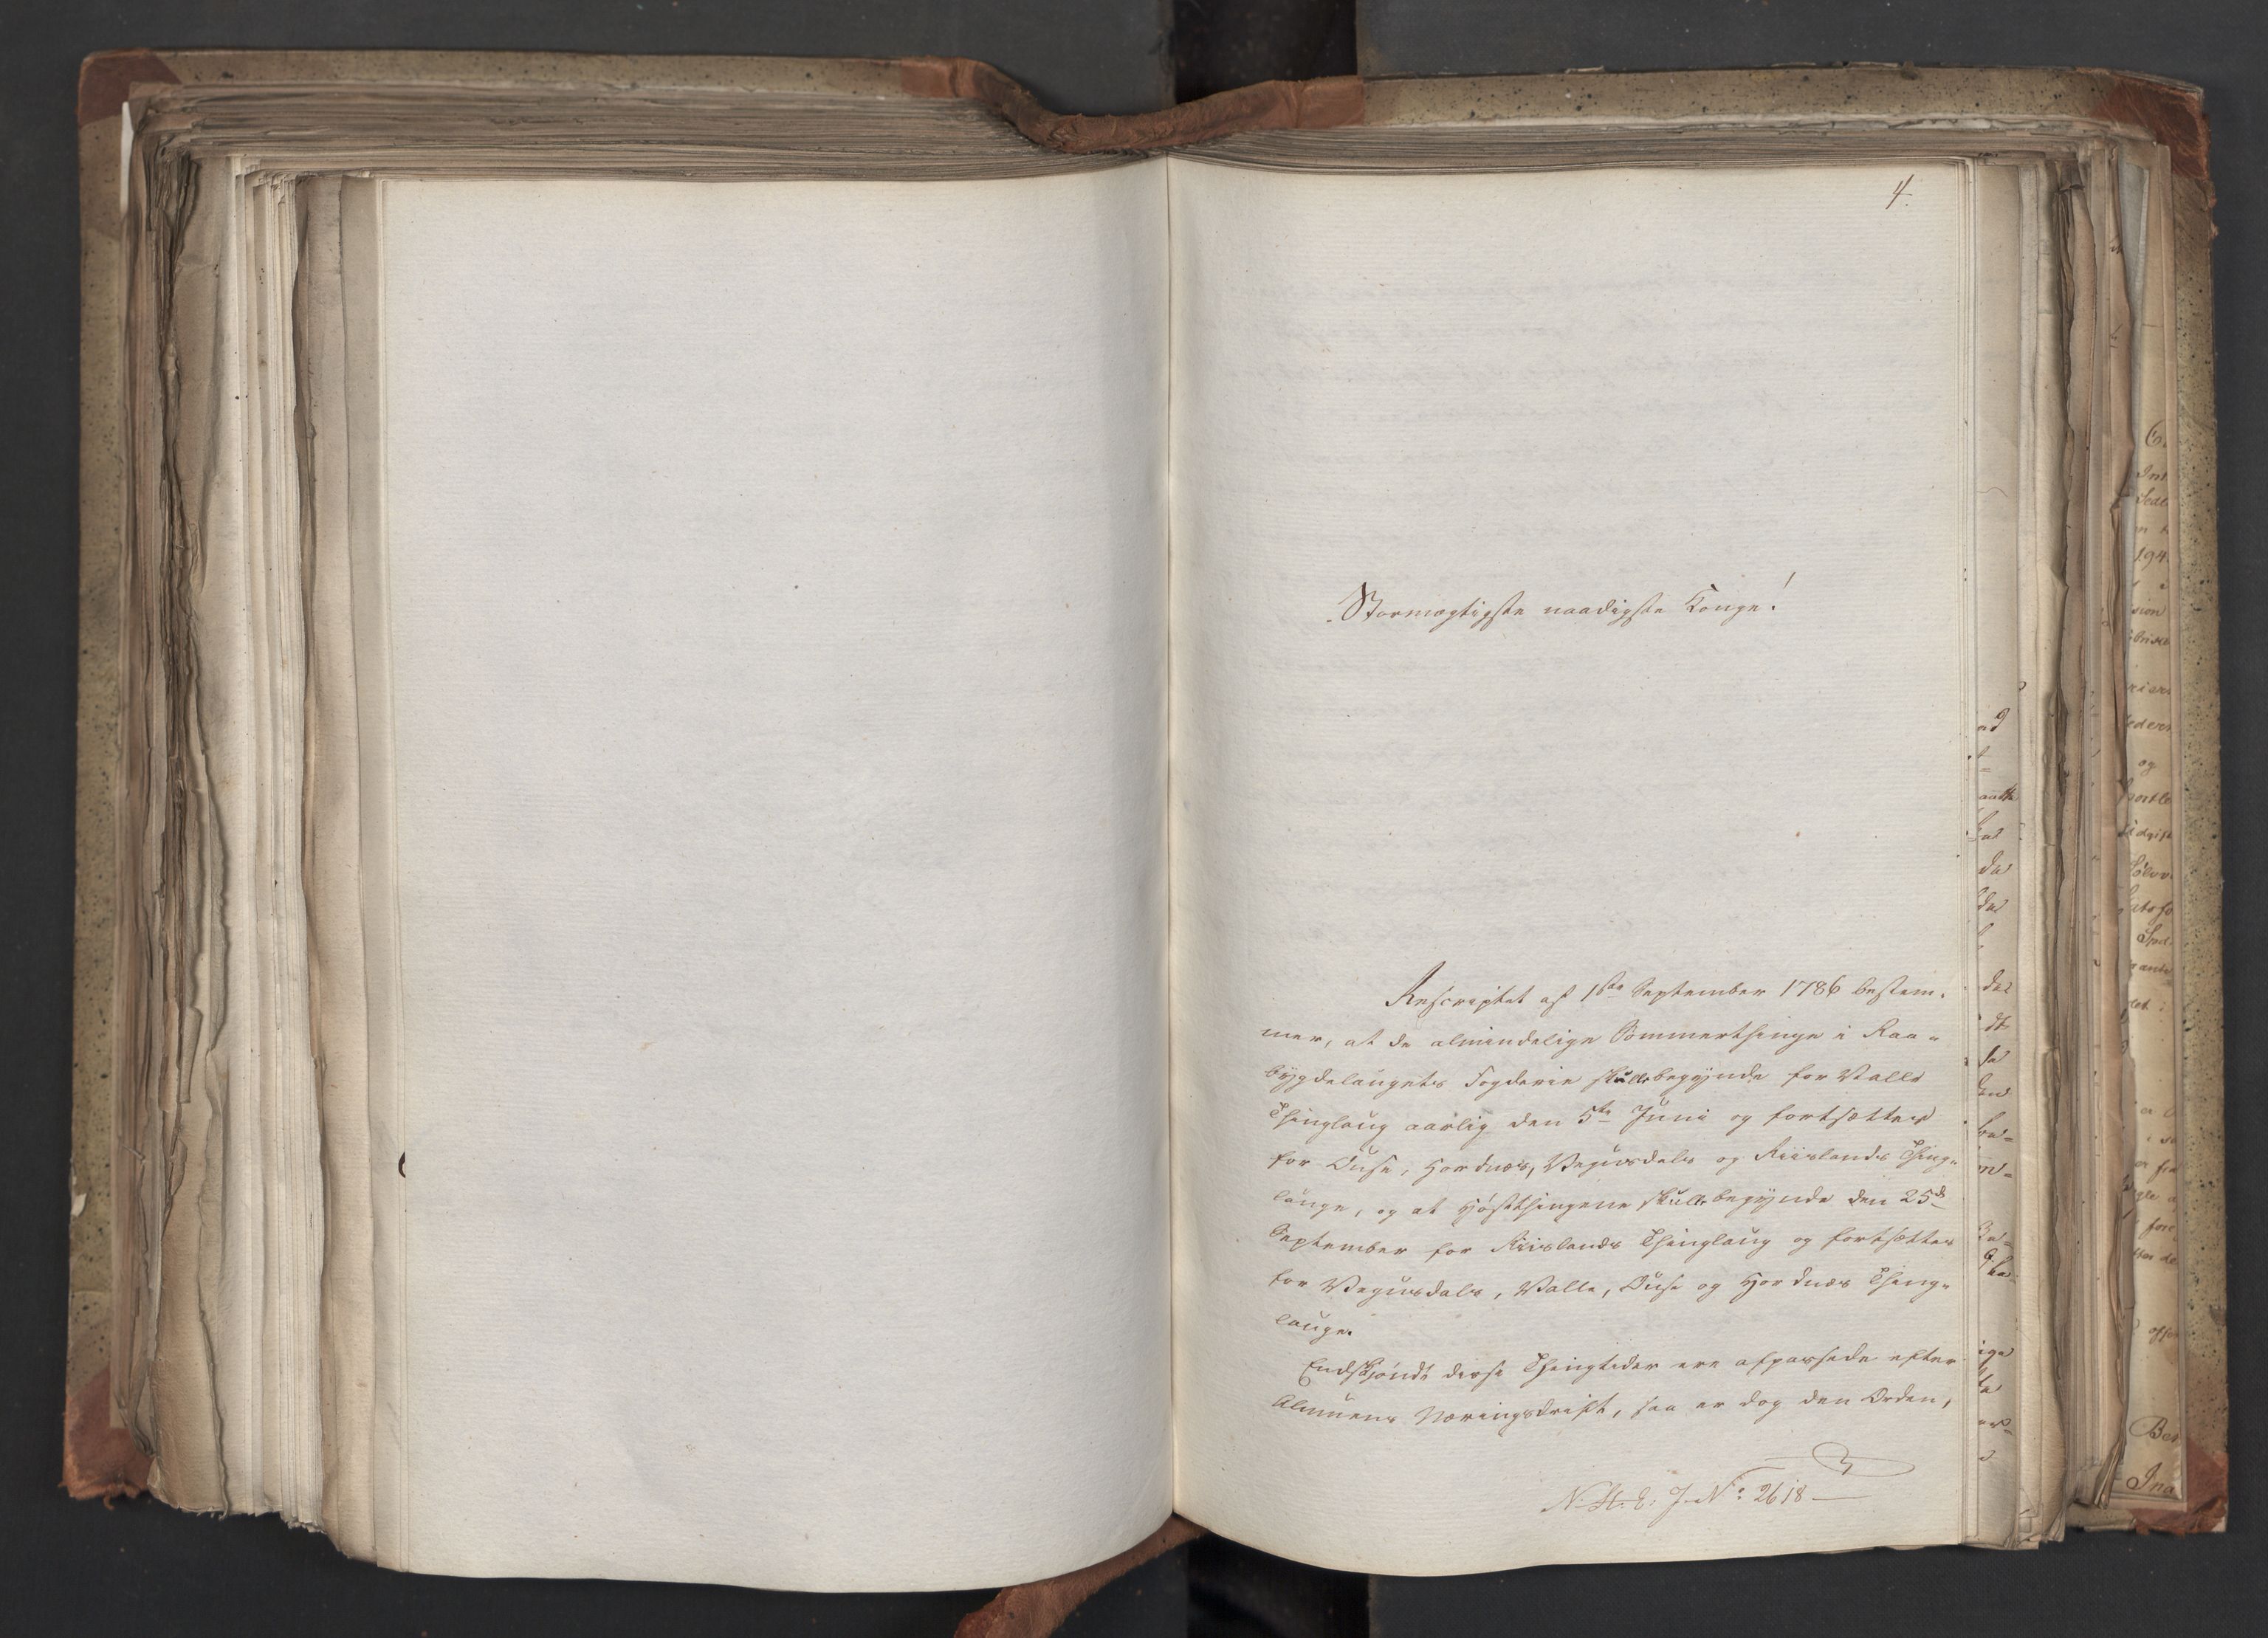 4.
Stormægtigste naadigste Konge!
Rescriptet af 1ste September 1786 bestem-
mer, at de almindelige Sommerthinge i Raa-
bygdelaugets Fogderie skulle begynde for Valle
Thinglaug aarlig den 5te Juni og fortsættes
for Ouse, Hordnæs, Vegusdals og Riislands Thing-
lauge, og at Høstthingene skulle begynde den 25de
September for Riislands Thinglaug og fortsættes
for Vegusdals, Valle, Ouse og Hordnæs Thing-
lauge.
Endskjøndt disse Thingtider ere afpassede efter
Almuens Næringsdrift, saa er dog den Orden,
N. H. E. J. No: 2618